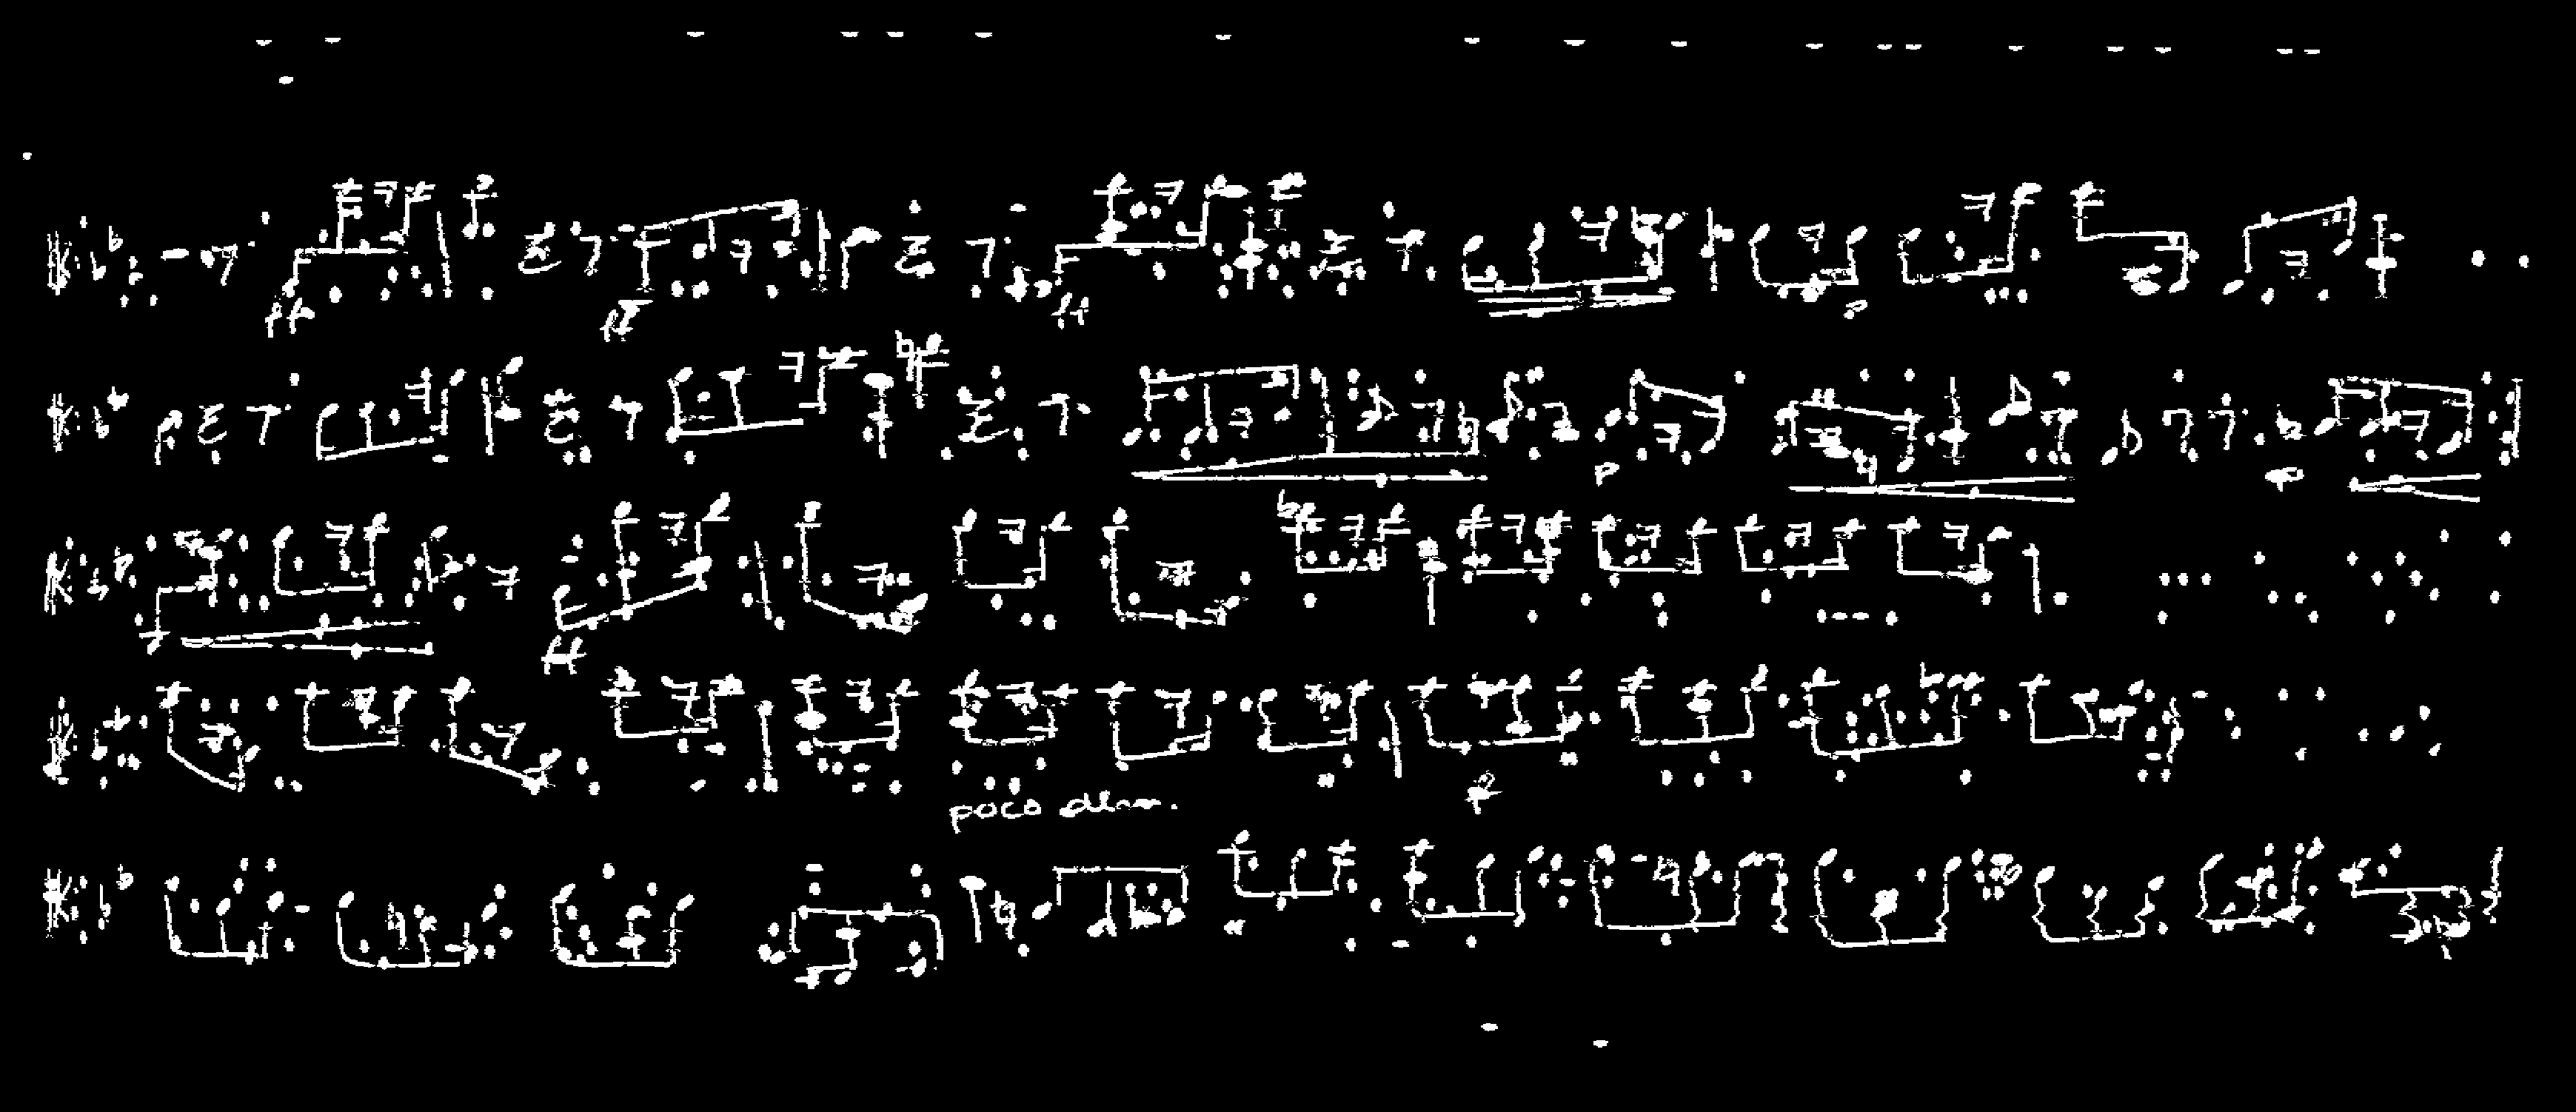 ff ff ff
p
p p
ff
poco dim.
p